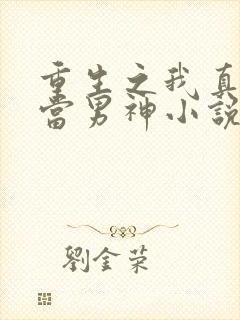 重生之我真
當男神小說
劉金荣